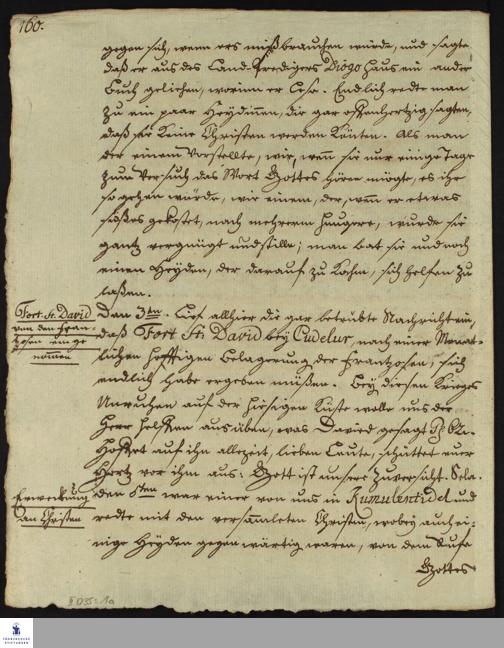 160.
gegen sich, wenn ers mißbrauchen würde, und sagte
daß er aus des Land-Predigers Diogo Hauß ein ander
Buch geliehen, worinn er lese. Endlich redte man
zu ein paar Heydinnen, die gar offenhertzig sagten,
daß sie keine Christen werden könten. Als man
der einem Vorstellte, wie, wenn sie nur einige Tage
zum Versuch das Wort Gottes hören mögte, es ihr
so gehen würde, wie einem, der, wenn er etwas
süßes gekostet, nach mehrerm hungere, wurde sie
gantz vergnügt und stille; man bat sie und noch
einen Heyden, der darauf zu kam, sich helfen zu
laßen.
Fort St. David
von den Fran-
zosen einge
nommen
Den 3ten. Lief allhier die gar betrübte Nachricht ein,
daß Fort St. David bey Cudelur, nach einer Monat-
lichen hefftigen Belagerung der Frantzosen, sich
endlich habe ergeben müßen. Bey diesen Krieges
Unruhen auf der hiesigen Küste wolle uns der
Herr helffen ausüben, was David gesagt Ps. 62.
Hoffet auf ihn allezeit, lieben Leute, schüttet euer
Hertz vor ihm aus: Gott ist unsere Zuversicht. Sela.
Erweckung
an Christen
den 6ten war einer von uns in Kumulentidel und
redte mit den versammleten Christen, wobey auch ei-
nige Heyden gegenwärtig waren, von dem Rufe
Gottes
FRANCKESCHE
STIFTUNGEN